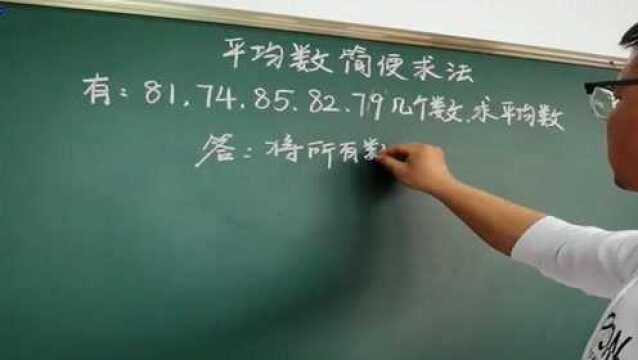 平均数简便求法
有：81.74.85.82.79几个数.求平均数
答：将所有数